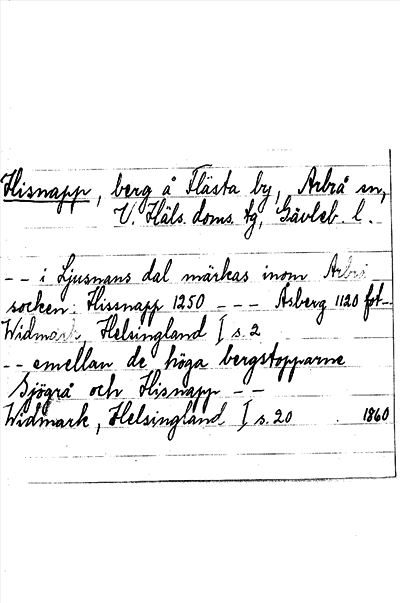 Hisnapp, berg å Flästa by, Arbrå sn,
V. Häls. doms. tg, Gävleb. l.
-- i Ljusnans dal märkas inom Arbrå
socken: Hissnapp 1250 --- Åsberg 1120 fot--
Widmark, Helsingland I s. 2
-- emellan de höga bergstopparne
Sjögrå och Hisnapp --
Widmark, Helsingland I s. 20 1860